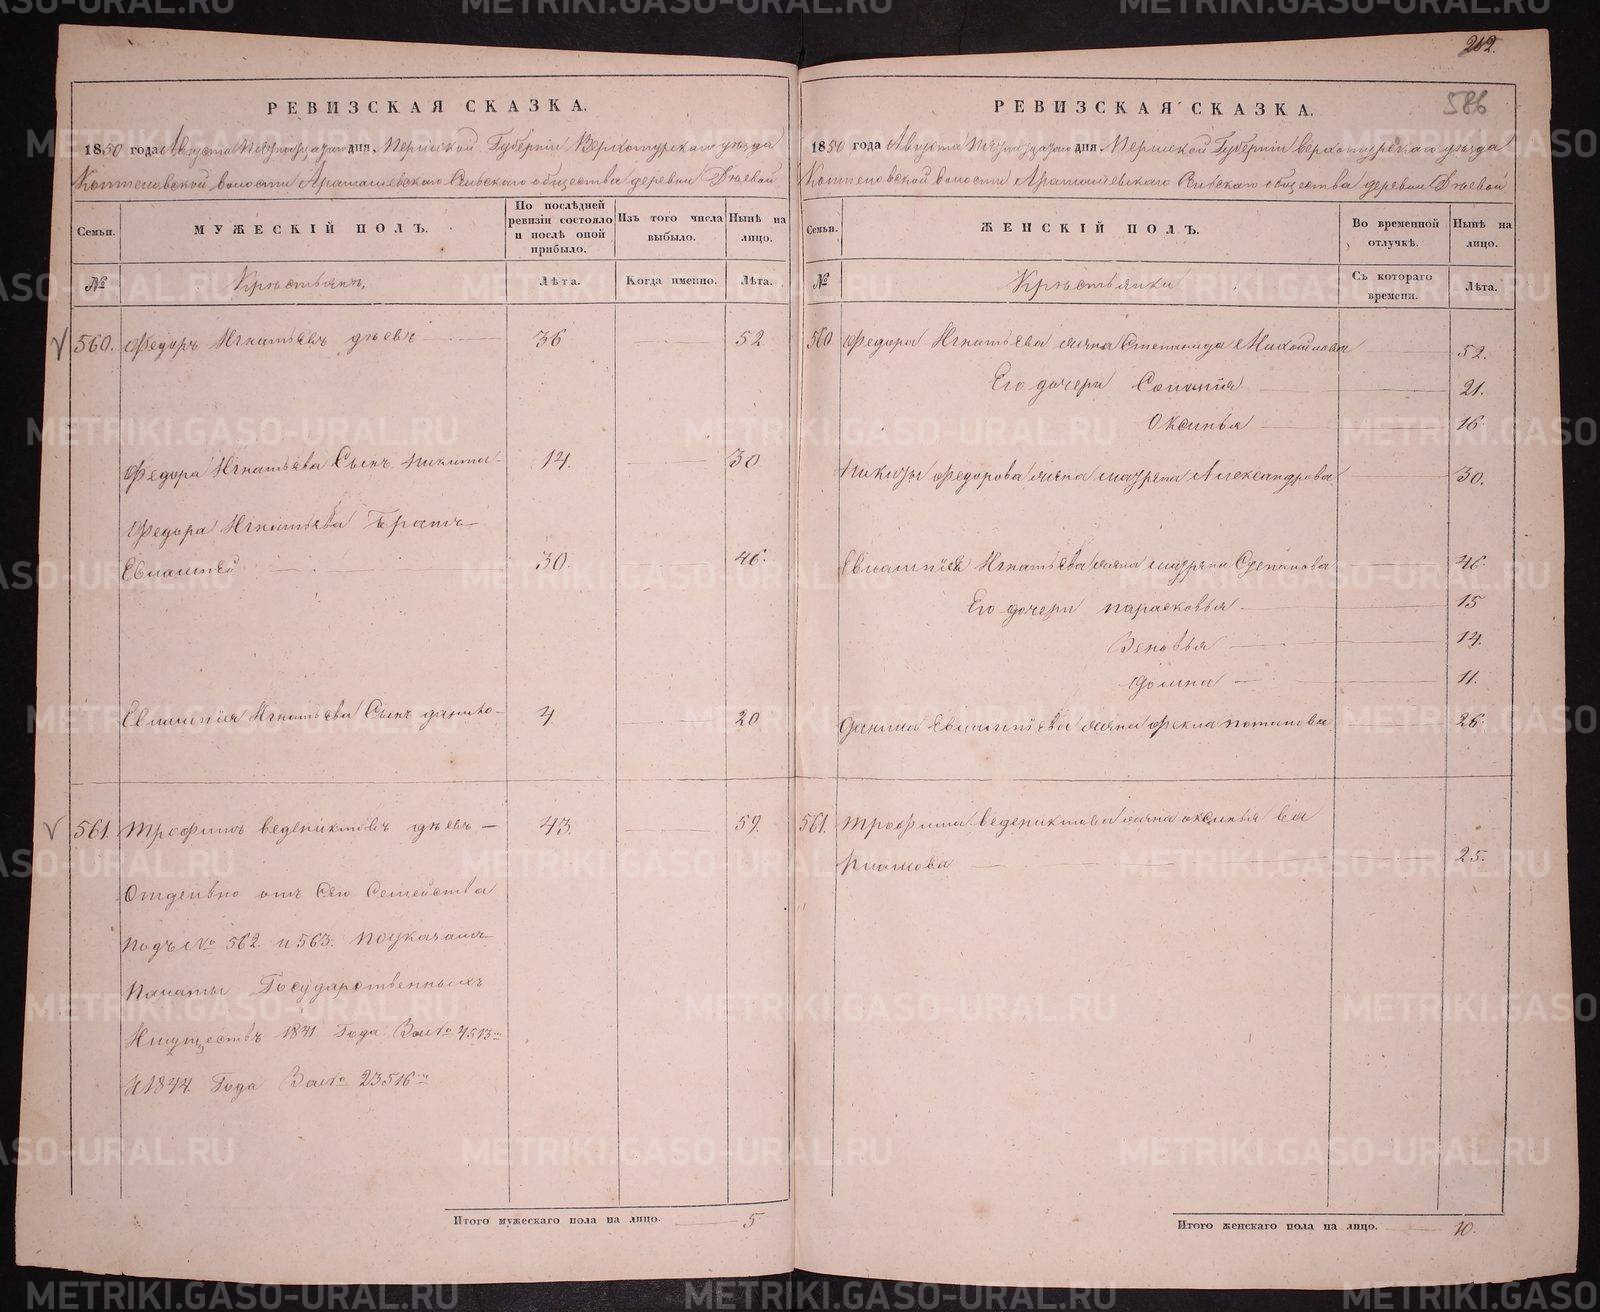 212.
586
РЕВИЗСКАЯ СКАЗКА.
1850 года Августа дня, Пермской Губерніи Верхотурскаго уѣзда
Коптеловской волости Арамашевскаго Сельскаго общества деревни Дѣевой
Семьи. МУЖЕСКІЙ ПОЛЪ. По послѣдней ревизіи состояло и послѣ оной прибыло. Изъ того числа выбыло. Нынѣ на лицо.
№ Крестьянъ, Лѣта. Когда именно. Лѣта.
560. Федоръ Игнатьевъ дѣевъ 36 52
Федора Игнатьева Сынъ Никита 14. 30
Федора Игнатьева Братъ
Евлампей 30. 46.
Евлампия Игнатьева Сынъ данило 4 20
561. Трофимъ веденихтовъ дѣевъ 43. 59.
Отдельно отъ Сего Семейства
подъ № 562. и 563. по указамъ
Палаты Государственныхъ
Имуществъ 1841. Года За № 4513
И 1844 Года За № 23516
Итого мужескаго пола на лицо. 5
РЕВИЗСКАЯ СКАЗКА.
1850 года Августа дня Пермской Губерніи верхотурскаго уѣзда
Коптеловской волости Арамашевскаго Сельскаго общества деревни Дѣевой
Семьи. ЖЕНСКІЙ ПОЛЪ. Во временной отлучкѣ. Нынѣ на лицо.
№ Крестьянки Съ котораго времени. Лѣта.
560 Федора Игнатьева жена Степанида Михайлова 52.
Его дочери 21.
Оксинья 16
Никиты Федорова жена мавряна Александрова 30.
Евлампия Игнатьева жена мавряна Степанова 46
Его дочери парасковья 15
Зеновья 14.
домна 11.
Данила Евлампиева жена фекла потапова 26.
561. Трофима веденихтова жена оксинья ва
рламова 25.
Итого женскаго пола на лицо. 10.
METRIKI.GASO-URAL.RU